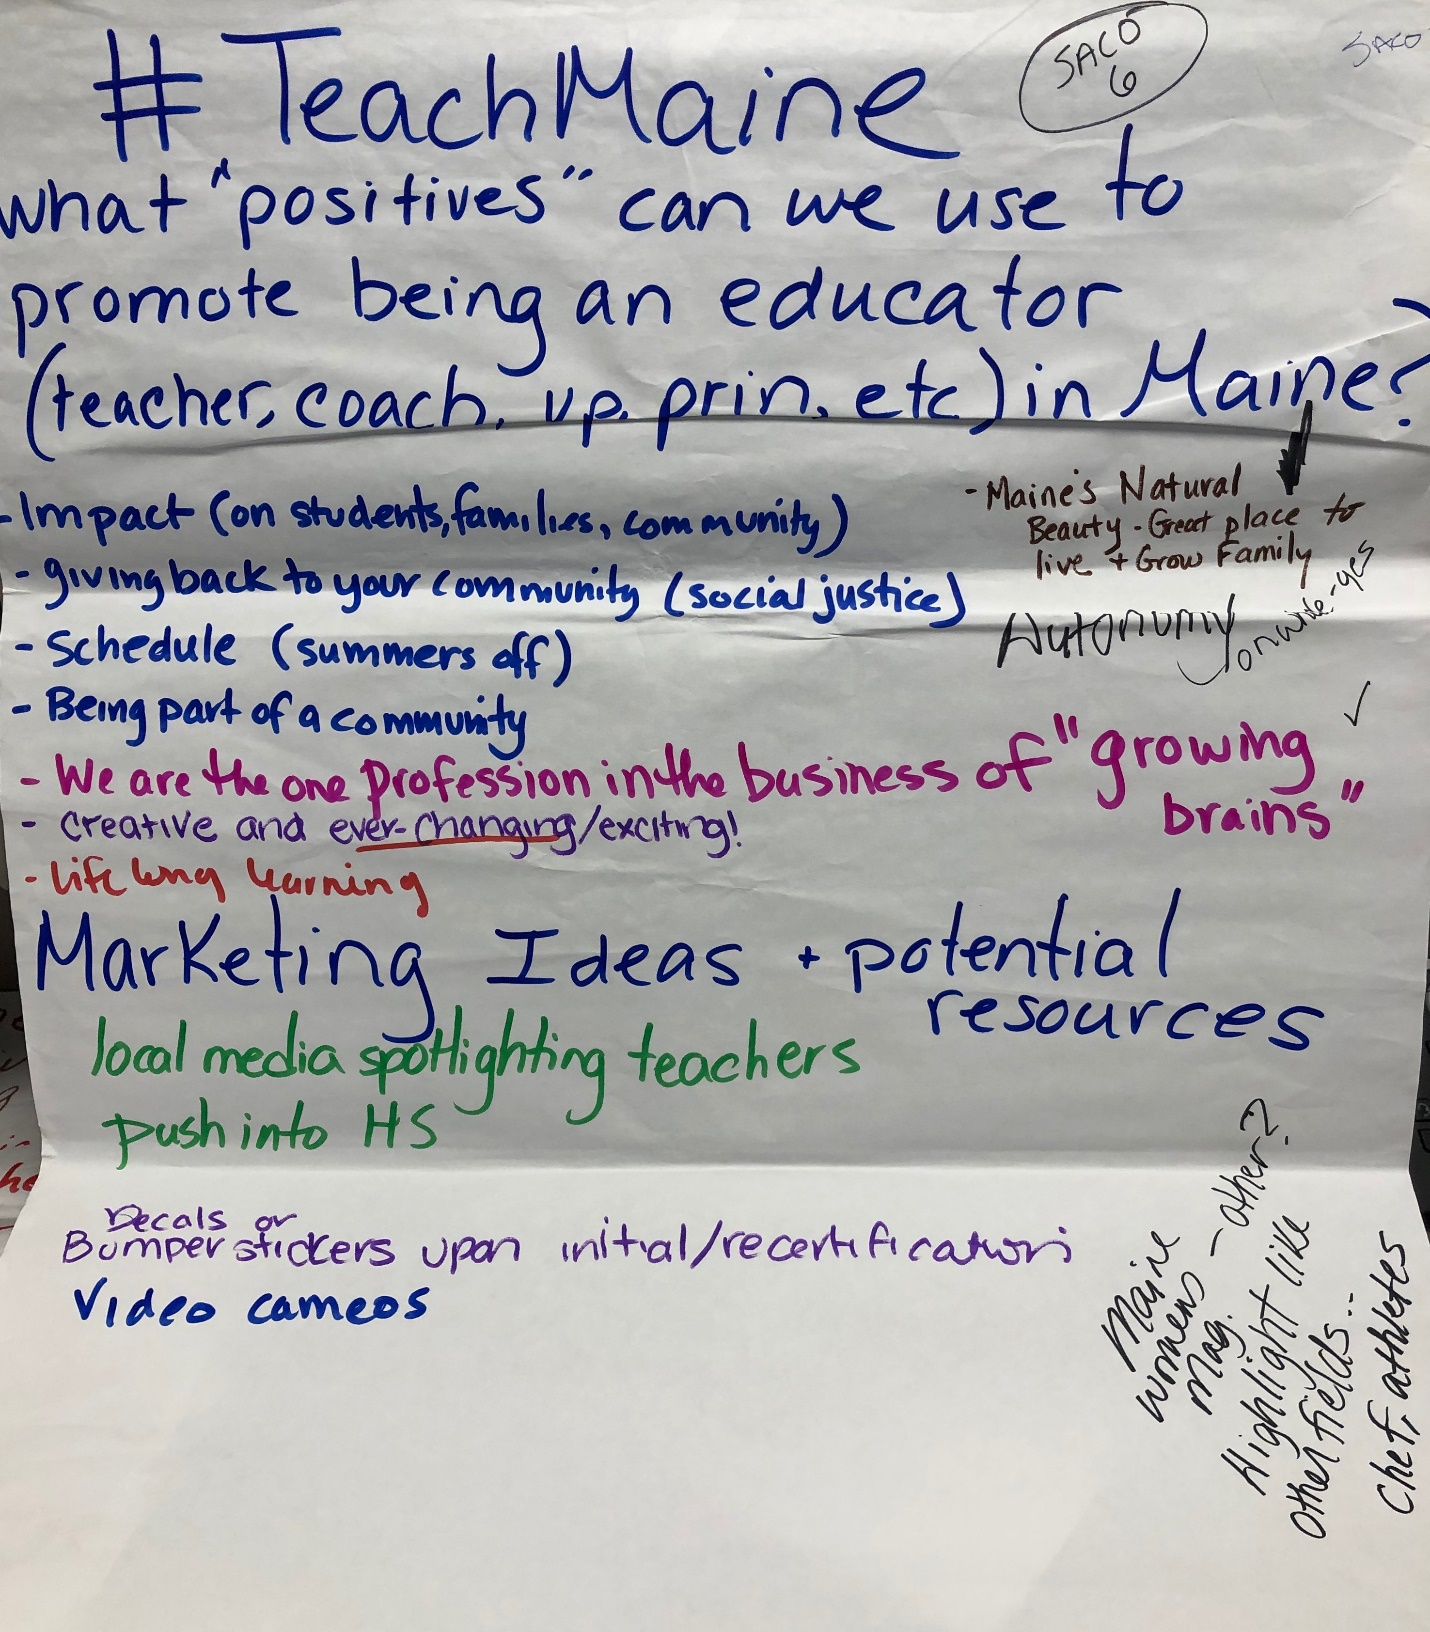 # TeachMaine
SACO
6
SACO
what "positives" can we use to
promote being an educator
(teacher, coach, vp, prin, etc) in Maine?
- Impact (on students, families, community)
- giving back to your community (social justice)
- Schedule (summers off)
- Being part of a community
- We are the one profession in the business of "growing
brains"
- creative and ever-changing/exciting!
- Life long learning
- Maine's Natural
Beauty - Great place to
live + Grow Family
Autonomy
Marketing Ideas + potential
resources
local media spotlighting teachers
push into HS
Decals or
Bumper stickers upon initial/recertification
Video cameos
Maine
womens
mag. - other?
Highlight like
other fields...
chef, athletes